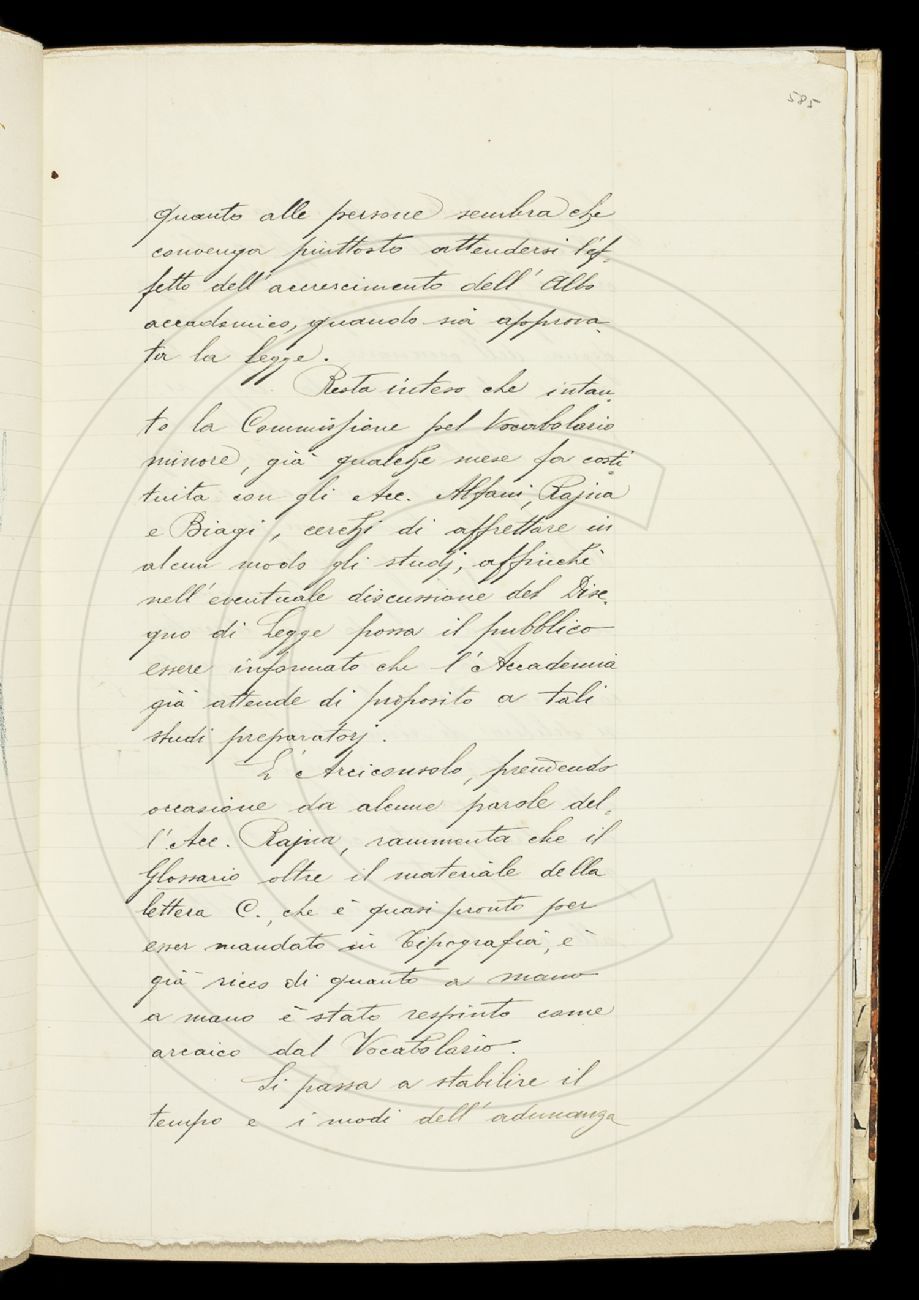 585
quanto alle persone sembra che
convenga piuttosto attendersi l'ef-
fetto dell'accrescimento dell'Albo
accademico, quando sia approva-
ta la legge.
Resta inteso che intan-
to la Commissione pel Vocabolario
minore, già qualche mese fa costi-
tuita con gli Acc. Alfani, Rajna
e Biagi, cerchi di affrettare in
alcun modo gli studj, affinchè
nell'eventuale discussione del Dise-
gno di Legge possa il pubblico
essere informato che l'Accademia
già attende di proposito a tali
studi preparatorj.
L'Arciconsolo, prendendo
occasione da alcune parole del-
l'Acc. Rajna, rammenta che il
Glossario oltre il materiale della
lettera C., che è quasi pronto per
esser mandato in Tipografia, è
già ricco di quanto a mano
a mano è stato respinto come
arcaico dal Vocabolario.
Si passa a stabilire il
tempo e i modi dell'adunanza